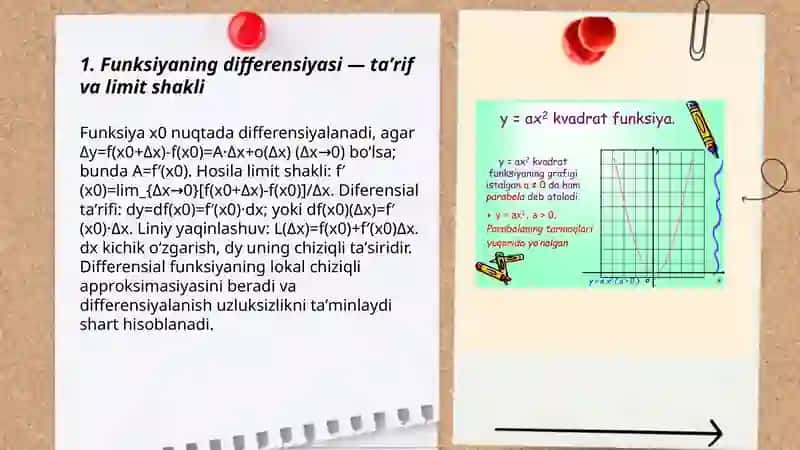 1. Funksiyaning differensiyasi — ta’rif
va limit shakli
Funksiya x0 nuqtada differensiyalanadi, agar
Δy=f(x0+Δx)-f(x0)=A·Δx+o(Δx) (Δx→0) bo‘lsa;
bunda A=f’(x0). Hosila limit shakli: f’
(x0)=lim_{Δx→0}[f(x0+Δx)-f(x0)]/Δx. Diferensial
ta’rifi: dy=df(x0)=f’(x0)·dx; yoki df(x0)(Δx)=f’
(x0)·Δx. Liniy yaqinlashuv: L(Δx)=f(x0)+f’(x0)Δx.
dx kichik o‘zgarish, dy uning chiziqli ta’siridir.
Differensial funksiyaning lokal chiziqli
approksimasiyasini beradi va
differensiyalanish uzluksizlikni ta’minlaydi
shart hisoblanadi.
y = ax² kvadrat funksiya.
y = ax² kvadrat
funksiyaning grafigi
istalgan a ≠ 0 da ham
parabola deb ataladi.
• y = ax², a > 0.
Parabolaning tarmoqlari
yuqoriga yo‘nalgan
y
y=ax²(a>0)
0
x